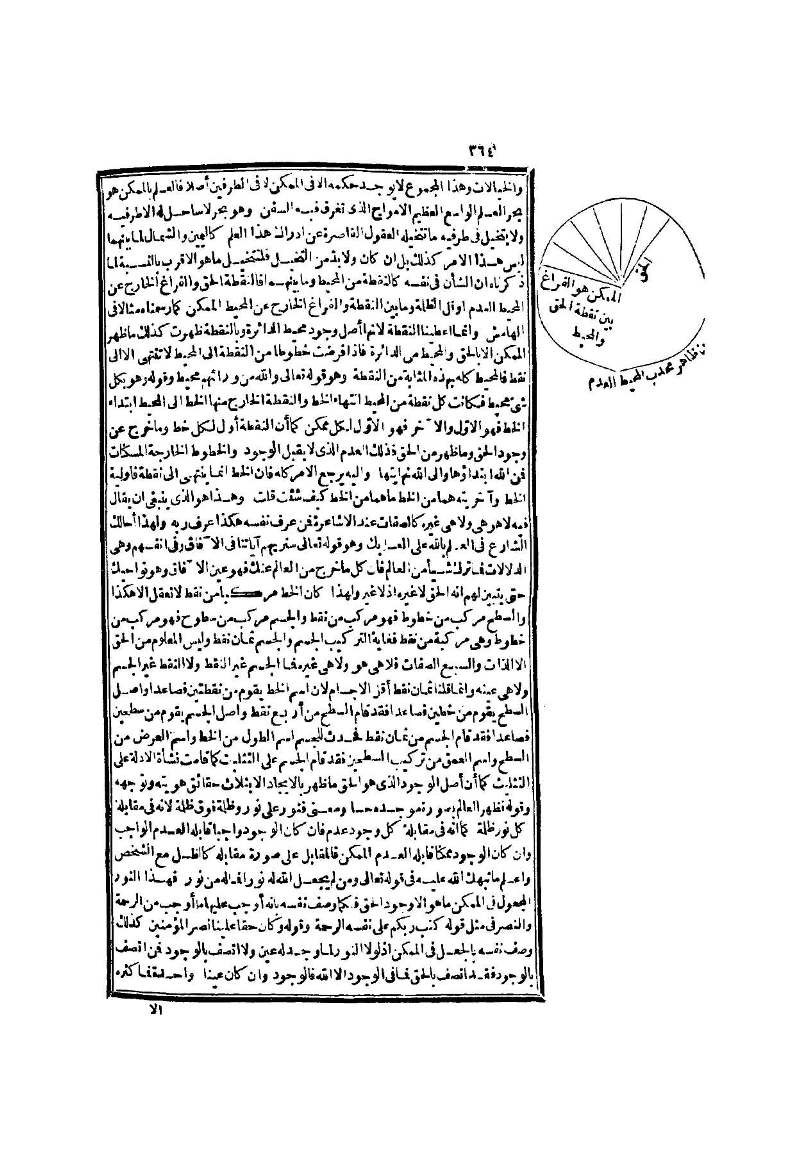 ٣٦٤
والخيالات وهذا المجموع لا يوجد حكمه الا في الممكن لا في الطرفين أصلا فالعلم بالممكن هو
بحر العلم الواسع العظيم الامواج الذي تغرق فيه السفن وهو بحر لا ساحل له الا طرفيه
ولا يتخيل في طرفيه ما تتخيله العقول القاصرة عن ادراك هذا العلم كاليمين والشمال لما بينهما
ليس هذا الامر كذلك بل ان كان ولا بد من التخيل فلتتخيل ما هو الاقرب بالنسبة لما
ذكرناه ان الشأن في نفسه كالنقطة من المحيط وما بينهما فالنقطة الحق والفراغ الخارج عن
المحيط العدم أو قل الظلمة وما بين النقطة والفراغ الخارج عن المحيط الممكن كما رسمناه مثالا في
الهامش وانما أعطينا النقطة لانها أصل وجود محيط الدائرة وبالنقطة ظهرت كذلك ما ظهر
الممكن الا بالحق والمحيط من الدائرة فاذا فرضت خطوطا من النقطة الى المحيط لا تنتهى الا الى
نقط فالمحيط كله بهذه المثابة من النقطة وهو قوله تعالى والله من ورائهم محيط وقوله وهو بكل
شئ محيط فكانت كل نقطة من المحيط انتهاء الخط والنقطة الخارج منها الخط الى المحيط ابتداء
الخط فهو الاول والآخر فهو الاول لكل ممكن كما أن النقطة أول لكل خط وما خرج عن
وجود الحق وما ظهر من الحق فذلك العدم الذي لا يقبل الوجود والخطوط الخارجة الممكنات
فمن الله ابتداؤها والى الله نهايتها واليه يرجع الامر كله فان الخط انما ينتهى الى نقطة فاولية
الخط وآخريته هما من الخط ما هما من الخط كيف شئت قلت وهذا هو الذي ينبغى ان يقال
فيه لا هي هو ولا هي غيره كالصفات عند الاشاعرة فمن عرف نفسه هكذا عرف ربه ولهذا أحالك
الشارع في العلم بالله على العلم بك وهو قوله تعالى سنريهم آياتنا في الآفاق وفي انفسهم وهي
الدلالات فما ترك شيأ من العالم فان كل ما خرج من العالم عنك فهو عين الآفاق وهو نواحيك
حتى يتبين لهم انه الحق لا غيره اذ لا غير ولهذا كان الخط مركبا من نقط لا تعقل الا هكذا
والسطح مركب من خطوط فهو مركب من نقط والجسم مركب من سطوح فهو مركب من
خطوط وهي مركبة من نقط فغاية التركيب الجسم والجسم ثمان نقط وليس المعلوم من الحق
الا الذات والسبع الصفات فلا هي هو ولا هي غيره فما الجسم غير النقط ولا النقط غير الجسم
ولا هي عينه وانما قلنا ثمان نقط أقل الاجسام لان اسم الخط يقوم من نقطتين فصاعدا وأصل
السطح يقوم من خطين فصاعدا فقد قام السطح من أربع نقط وأصل الجسم يقوم من سطحين
فصاعدا فقد قام الجسم من ثمان نقط فحدث للجسم اسم الطول من الخط واسم العرض من
السطح واسم العمق من تركيب السطحين فقد قام الجسم على التثليث كما قامت نشأة الادلة على
التثليث كما أن أصل الوجود الذي هو الحق ما ظهر بالايجاد الا بثلاث حقائق هويته وتوجهه
وقوله فظهر العالم بصورة موجده حسا ومعنى فنور على نور وظلمة فوق ظلمة لانه في مقابلة
كل نور ظلمة كما انه في مقابلة كل وجود عدم فان كان الوجود واجبا قابله العدم الواجب
وان كان الوجود ممكنا قابله العدم الممكن فالمقابل على صورة مقابله كالظل مع الشخص
واعلم ما نبهك الله عليه في قوله تعالى ومن لم يجعل الله له نورا فما له من نور فهذا النور
المجعول في الممكن ما هو الا وجود الحق فكما وصف نفسه بانه أوجب عليها ما أوجب من الرحمة
والنصر في مثل قوله كتب ربكم على نفسه الرحمة وقوله وكان حقا علينا نصر المؤمنين كذلك
وصف نفسه بالجعل في الممكن اذ لولا النور لما وجد له عين ولا اتصف بالوجود فمن اتصف
بالوجود فقد اتصف بالحق فما في الوجود الا الله فالوجود وان كان عينا واحدة فما كثره
الا
الحق
الممكن هو الفراغ
بين نقطة الحق
والمحيط
ظاهر محدب المحيط العدم